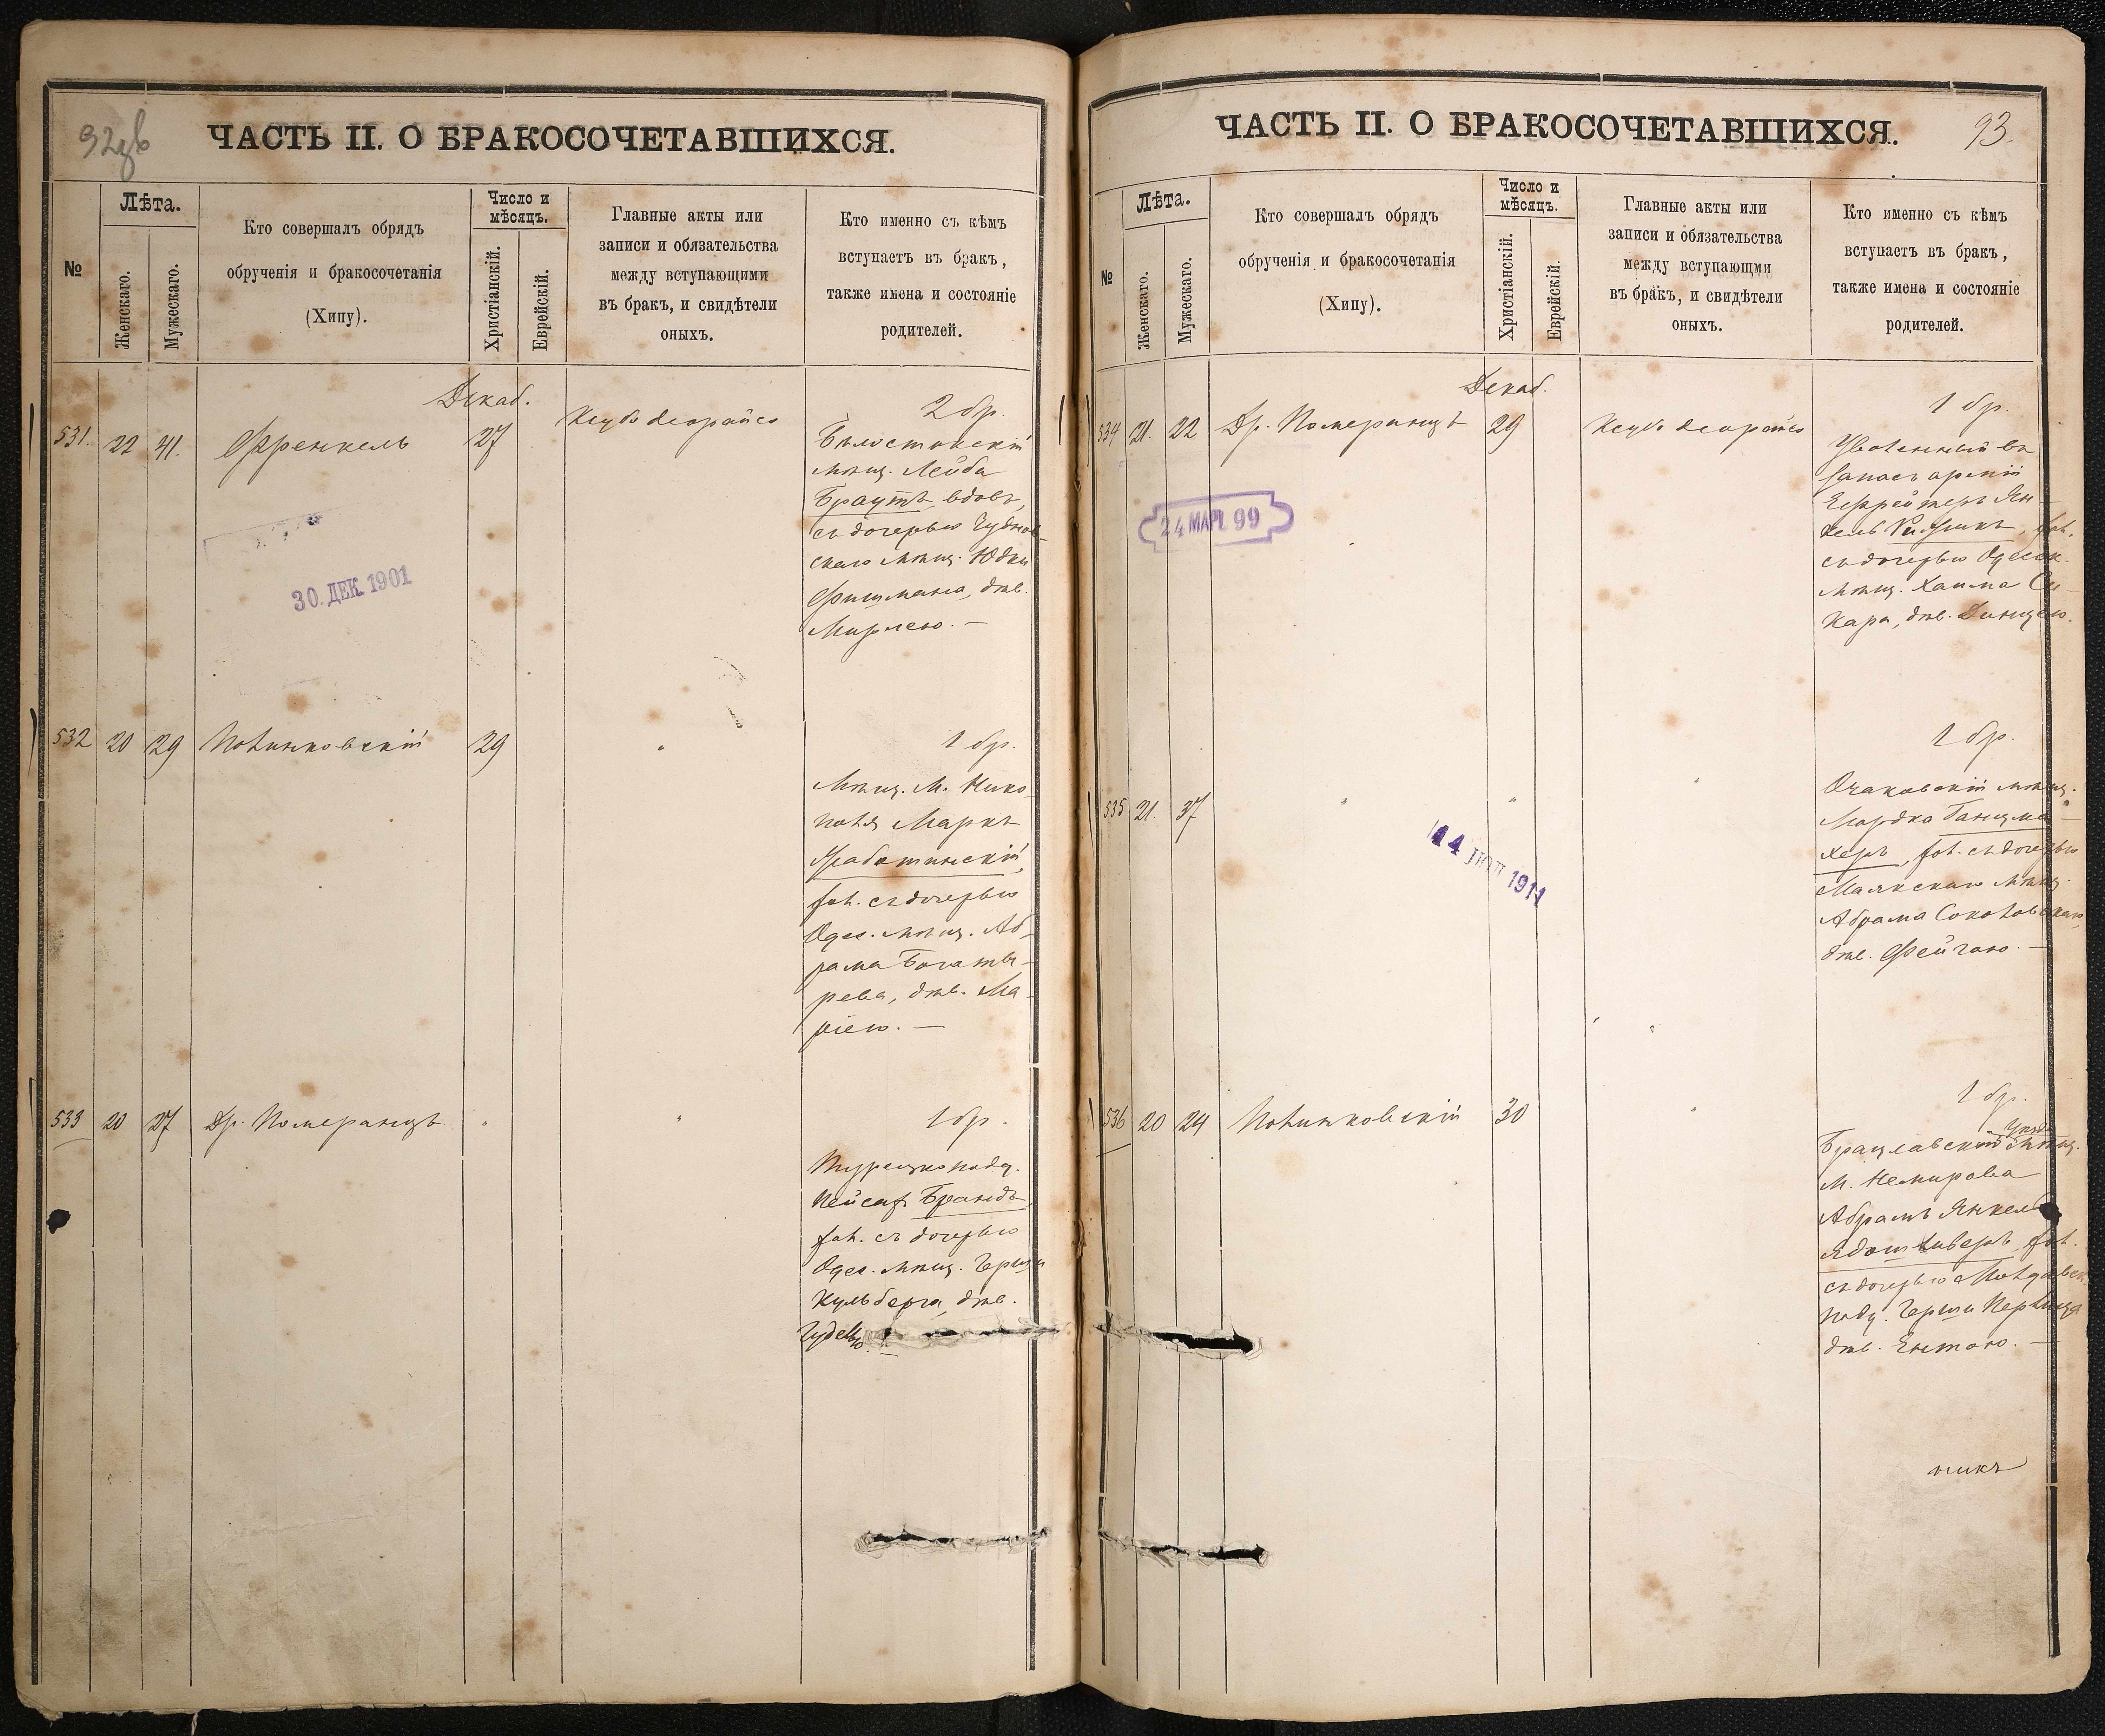 92
ЧАСТЬ II. О БРАКОСОЧЕТАВШИХСЯ.
№
Лѣта.
Женскаго.
Мужескаго.
Кто совершалъ обрядъ
обрученія и бракосочетанія
(Хипу).
Число и
мѣсяцъ.
Христіанскій.
Еврейскій.
Главные акты или
записи и обязательства
между вступающими
въ бракъ, и свидѣтели
оныхъ.
Кто именно съ кѣмъ
вступаетъ въ бракъ,
также имена и состояніе
родителей.
Декаб.
531. 22 41. Френкель 27
2 бр.
Бѣлостокскій
мѣщ. Лейба
Браутъ, вдов.,
съ дочерью Чуднов-
скаго мѣщ. Юдки
Фишмана, дѣв.
Мирлею. —
30. ДЕК. 1901
532 20 29 Полинковскій 29 "
1 бр.
Мѣщ. М. Нико-
поля Маркъ
Жаботинскій,
хол. съ дочерью
Одес. мѣщ. Аб-
рама Богаты-
рева, дѣв. Ма-
ріею. —
533 20 27 Др. Померанцъ " "
1 бр.
Турецкоподд.
Пейсах Брандъ
хол. съ дочерью
Одес. мѣщ. Герша
Кульберга, дѣв.
93.
ЧАСТЬ II. О БРАКОСОЧЕТАВШИХСЯ.
№
Лѣта.
Женскаго.
Мужескаго.
Кто совершалъ обрядъ
обрученія и бракосочетанія
(Хипу).
Число и
мѣсяцъ.
Христіанскій.
Еврейскій.
Главные акты или
записи и обязательства
между вступающми
въ бракъ, и свидѣтели
оныхъ.
Кто именно съ кѣмъ
вступаетъ въ бракъ,
также имена и состояніе
родителей.
Декаб.
534 21. 22 Др. Померанцъ 29
1 бр.
Уволенный въ
запасъ арміи
Ефрейторъ Ян-
кель хол.
съ дочерью Одесск.
мѣщ. Хаима Сы-
кара, дѣв. Динцею.
24 МАР. 99
535 21. 37 " " "
1 бр.
Очаковскій мѣщ.
Мордко Ганцма-
херъ, хол. съ дочерью
Маякскаго мѣщ.
Абрама Соколовскаго,
дѣв. Фейгою. —
14 1911
536 20 24 Полинковскій 30 "
1 бр.
Брацлавскаго уѣзда мѣщ.
М. Немирова
Абрамъ Янкель
хол.
съ дочерью Молдавск.
подд. Герша
дѣв. Ентою. —
никъ